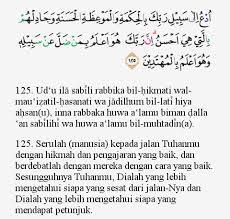 اُدْعُ إِلَى سَبِيلِ رَبِّكَ بِالْحِكْمَةِ وَالْمَوْعِظَةِ الْحَسَنَةِ وَجَادِلْهُمْ
بِالَّتِي هِيَ أَحْسَنُ إِنَّ رَبَّكَ هُوَ أَعْلَمُ بِمَنْ ضَلَّ عَنْ سَبِيلِهِ
وَهُوَ أَعْلَمُ بِالْمُهْتَدِينَ ١٢٥
125. Ud‘u ilā sabīli rabbika bil-ḥikmati wal-
mau‘iẓatil-ḥasanati wa jādilhum bil-latī hiya
aḥsan(u), inna rabbaka huwa a‘lamu biman ḍalla
‘an sabīlihī wa huwa a‘lamu bil-muhtadīn(a).
125. Serulah (manusia) kepada jalan Tuhanmu
dengan hikmah dan pengajaran yang baik, dan
berdebatlah dengan mereka dengan cara yang baik.
Sesungguhnya Tuhanmu, Dialah yang lebih
mengetahui siapa yang sesat dari jalan-Nya dan
Dialah yang lebih mengetahui siapa yang
mendapat petunjuk.